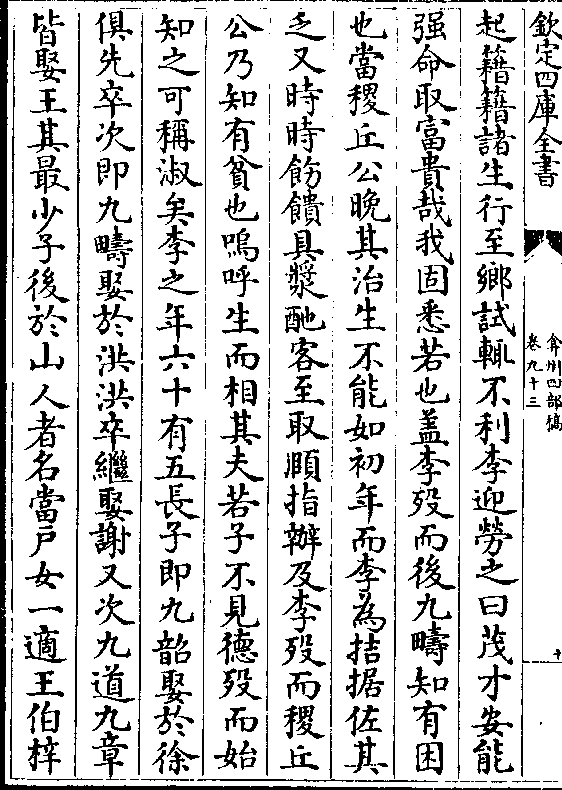 欽定四庫全書
弇州四部稿
卷九十三
十
起籍籍諸生行至鄉試輒不利李迎勞之曰茂才安能
强命取富貴哉我固悉若也蓋李殁而後九疇知有困
也當稷丘公晩其治生不能如初年而李為拮据佐其
乏又時時飭饋具漿酏客至取顧指辦及李殁而稷丘
公乃知有貧也嗚呼生而相其夫若子不見德殁而始
知之可稱淑矣李之年六十有五長子即九韶娶於徐
俱先卒次即九疇娶於洪洪卒繼娶謝又次九道九章
皆娶王其最少子後於山人者名當戶女一適王伯梓